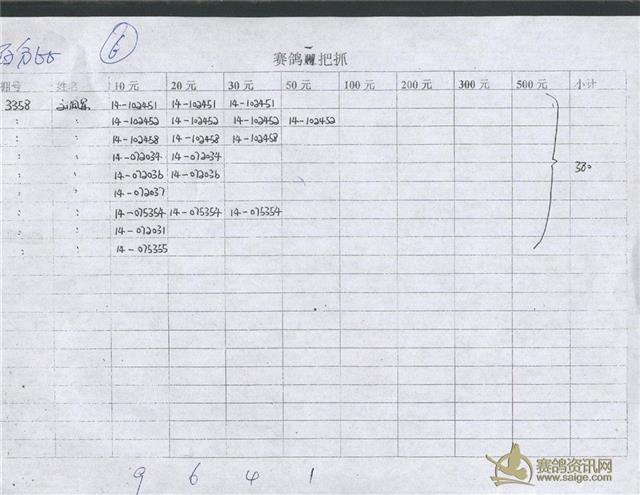 百分比 6
赛鸽一把抓
棚号 姓名 10元 20元 30元 50元 100元 200元 300元 500元 小计
3358 14-102451 14-102451 14-102451
" " 14-102452 14-102452 14-102452 14-102452
" " 14-102458 14-102458 14-102458
" " 14-072034 14-072034
" " 14-072036 14-072036 380
" " 14-072037
" " 14-075354 14-075354 14-075354
" " 14-072031
" " 14-075355
9 6 4 1
赛鸽资讯网
www.saige.com